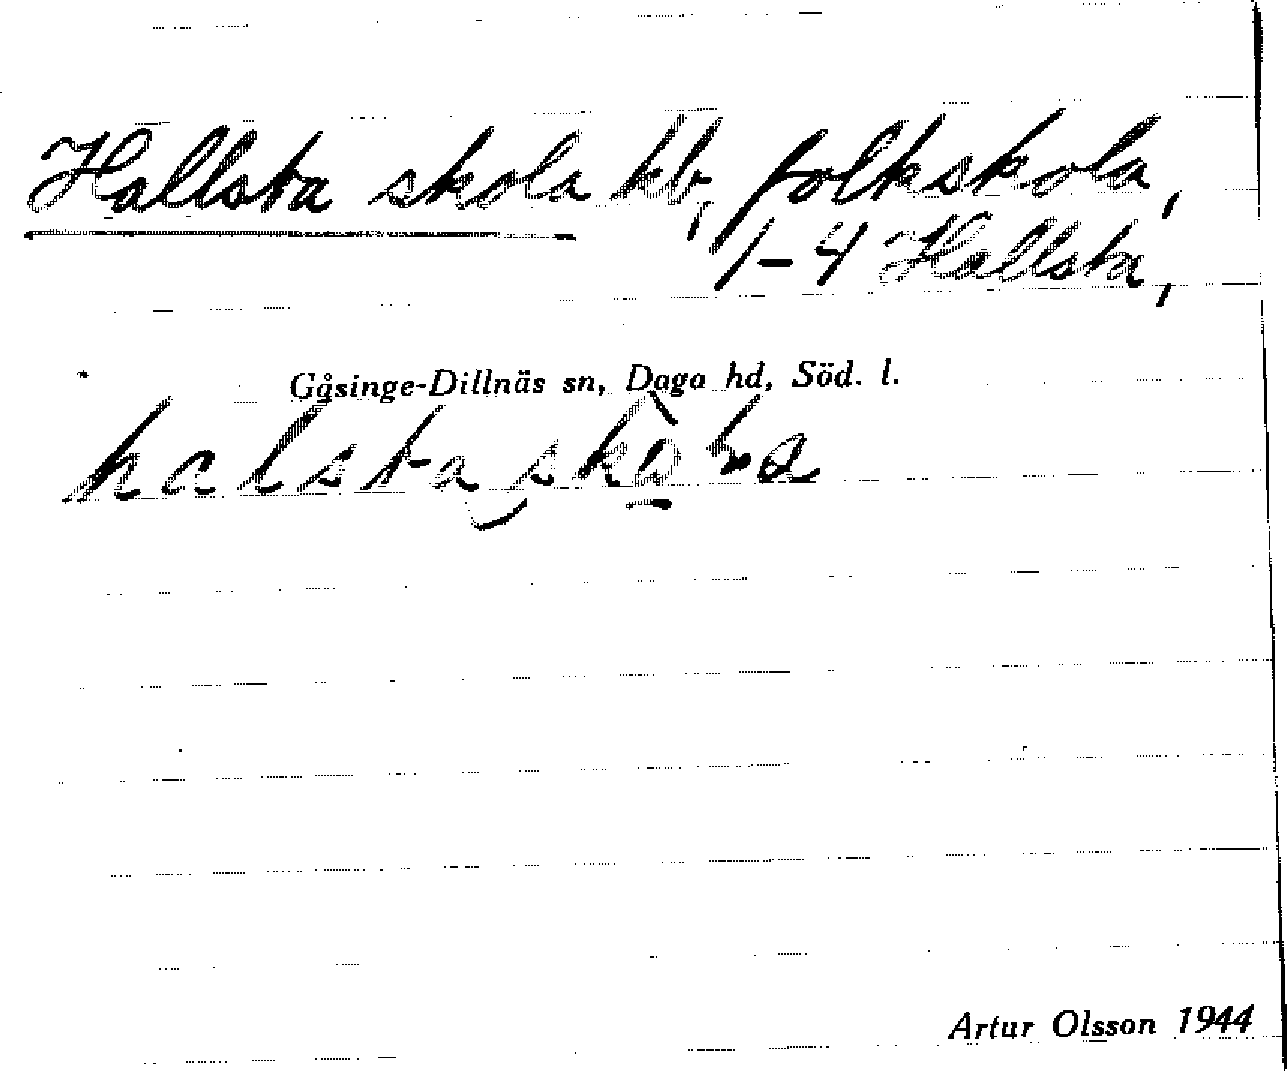 Hallsta skola kb, folkskola,
1-4 Hallsta,
Gåsinge-Dillnäs sn, Daga hd, Söd. l.
halsta skola
Artur Olsson 1944